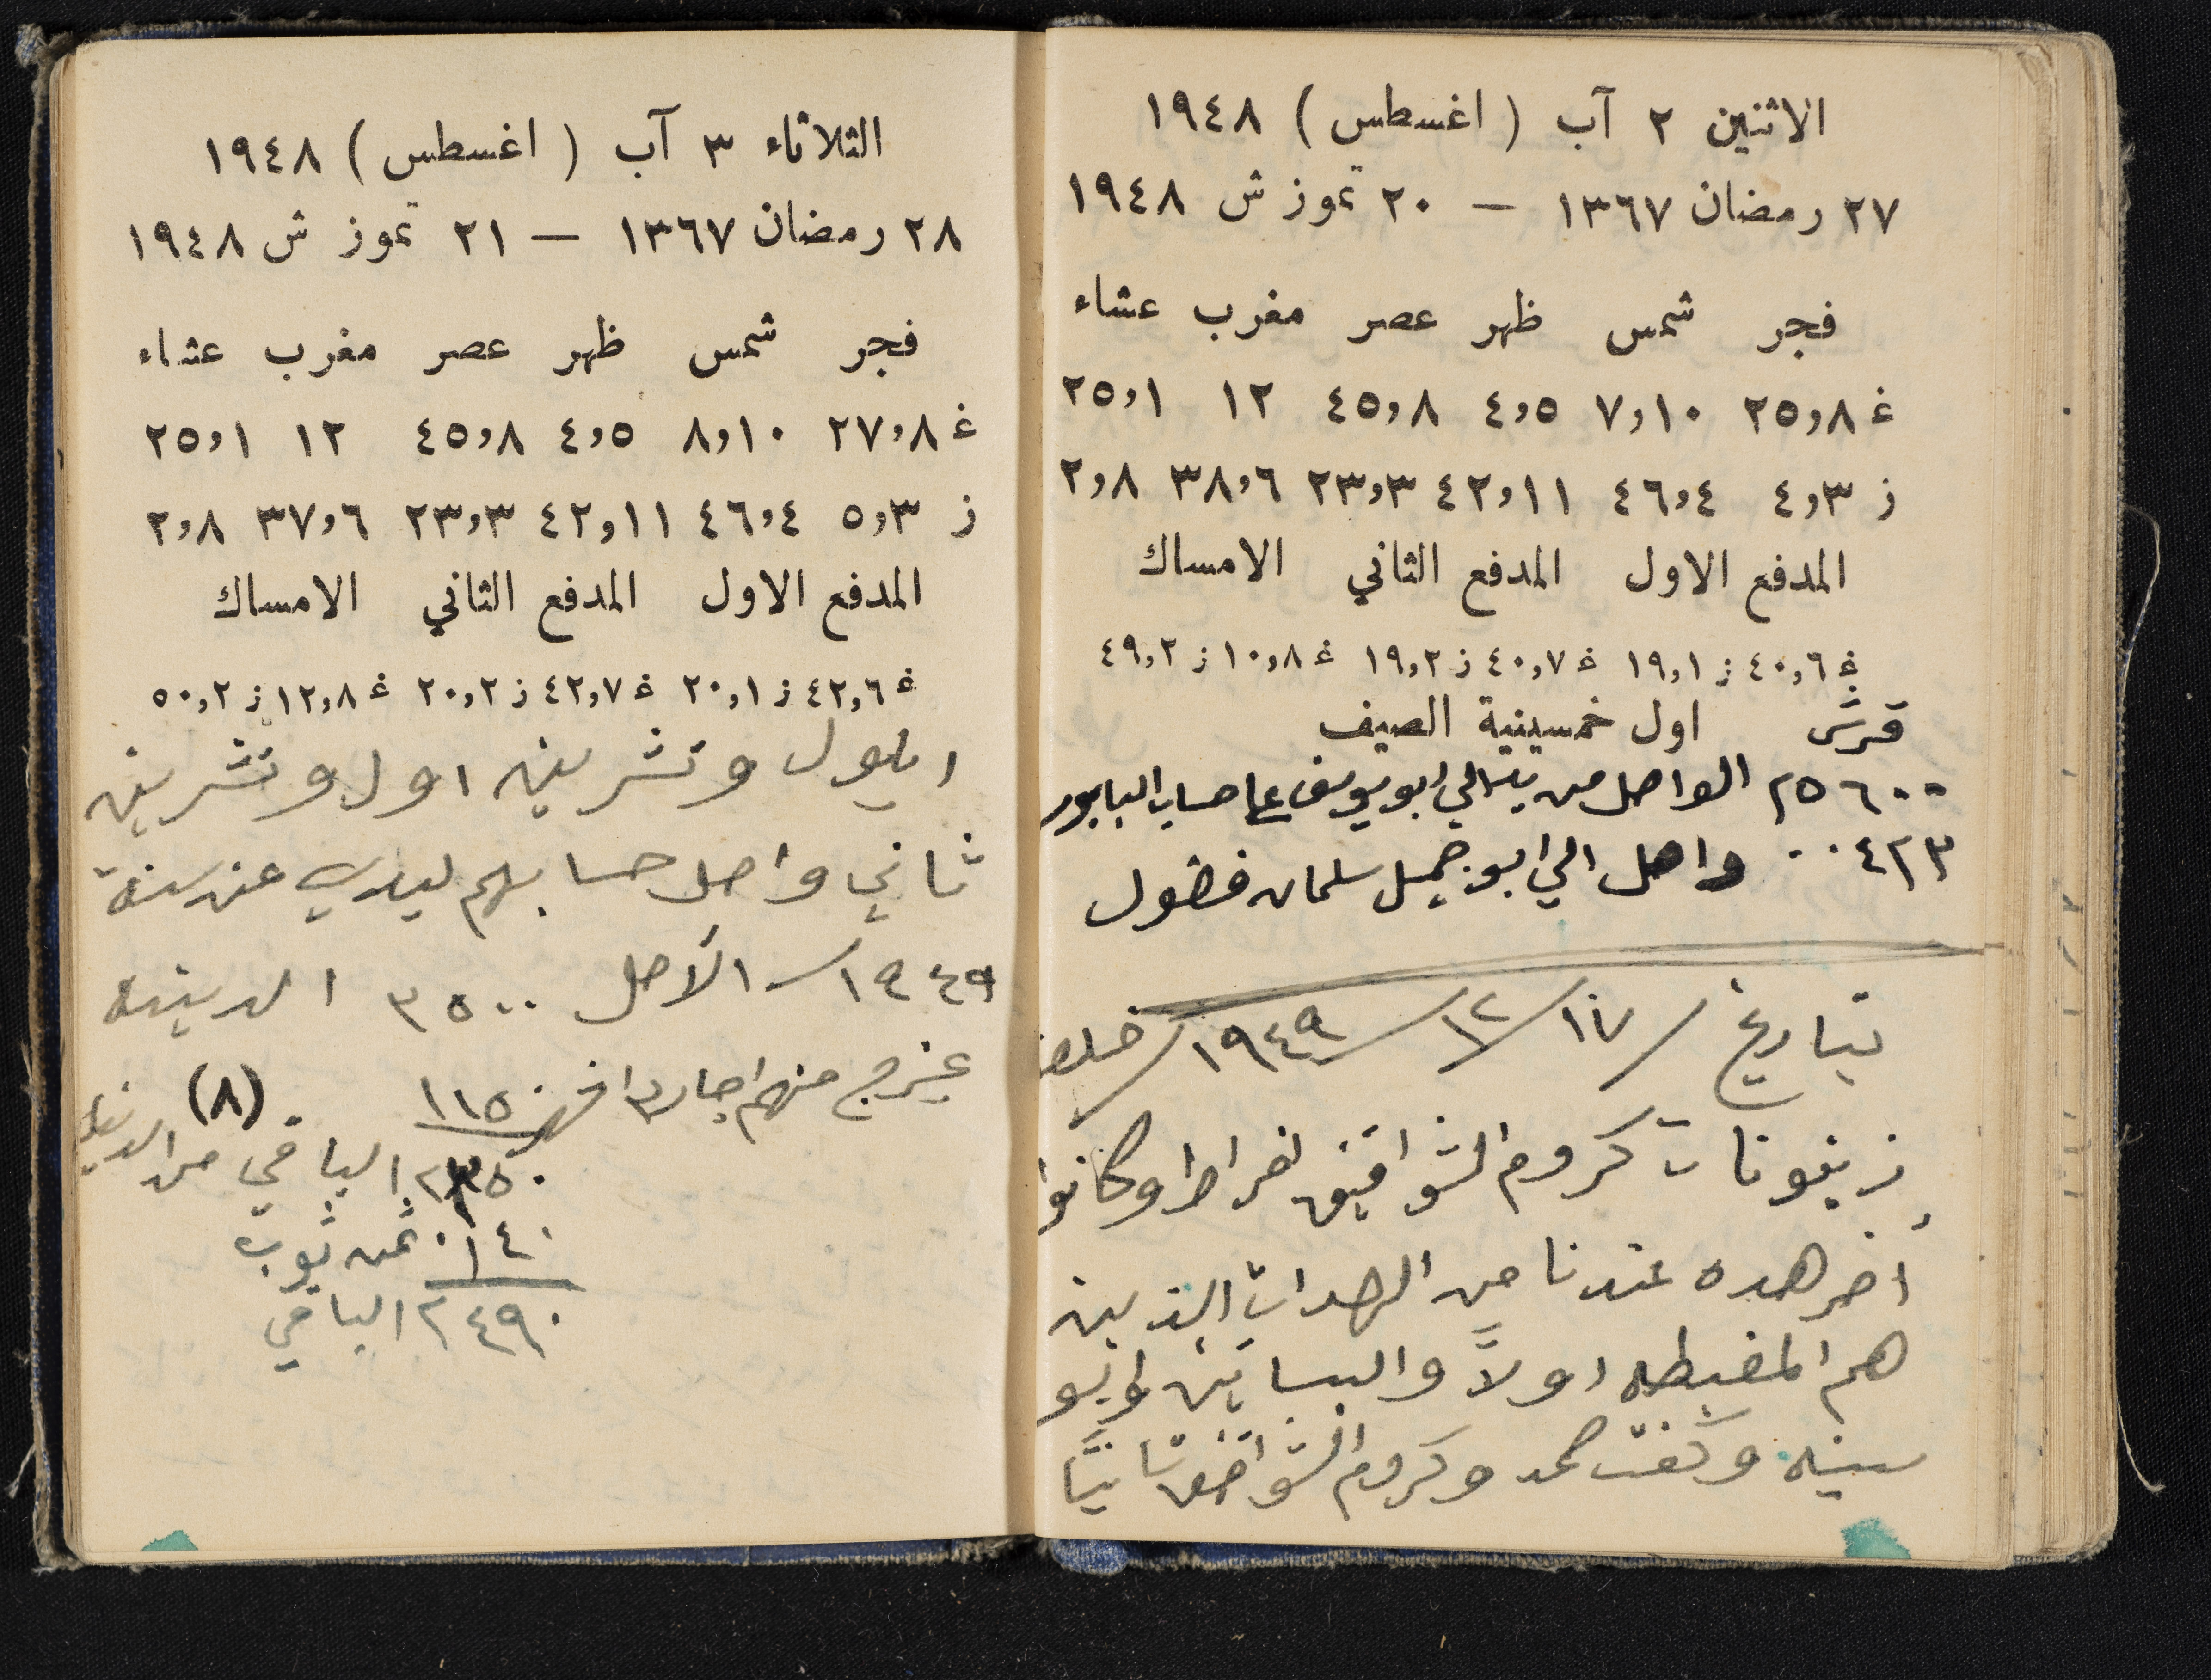 الاثنين ٢ آب ( اغسطس ) ١٩٤٨
٢٧ رمضان ١٣٦٧ — ٢٠ تموز ش ١٩٤٨
فجر شمس ظهر عصر مغرب عشاء
غ ٢٥,٨ ٧,١٠ ٤,٥ ٤٥,٨ ١٢ ٢٥,١
ز ٤,٣ ٤٦,٤ ٤٢,١١ ٢٣,٣ ٣٨,٦ ٢,٨
المدفع الاول المدفع الثاني الامساك
غ ٤٠,٦ ز ١٩,١ غ ٤٠,٧ ز ١٩,٢ غ ١٠,٨ ز ٤٩,٢
قرش اول خمسينية الصيف
٢٥٦٠٠ الواصل من الي ابو يوسف حساب البابور
٠٠٤٢٣ واصل الي ابو جميل سلمان فضول
بتاريخ / ١٧ / ١٢ / ١٩٤٩ / خلصو
زيتونات كروم الشواقيق وكانوا
اخر هده عندنا من الذين
هم اولاً
وكروم الشواقيق ثانيًا
الثلاثاء ٣ آب ( اغسطس ) ١٩٤٨
٢٨ رمضان ١٣٦٧ — ٢١ تموز ش ١٩٤٨
فجر شمس ظهر عصر مغرب عشاء
غ ٢٧,٨ ٨,١٠ ٤,٥ ٤٥,٨ ١٢ ٢٥,١
ز ٥,٣ ٤٦,٤ ٤٢,١١ ٢٣,٣ ٣٧,٦ ٢,٨
المدفع الاول المدفع الثاني الامساك
غ ٤٢,٦ ز ٢٠,١ غ ٤٢,٧ ز ٢٠,٢ غ ١٢,٨ ز ٥٠,٢
ايلول وتشرين اول وتشرين
ثاني واصل حسابهم عن سنة
١٩٤٩ / الاصل ٣٥٠٠
منهم ١١٥٠ (٨)
٢٣٥٠ الباقي من
٠١٤٠ ثمن ثوب
٢٤٩٠ الباقي